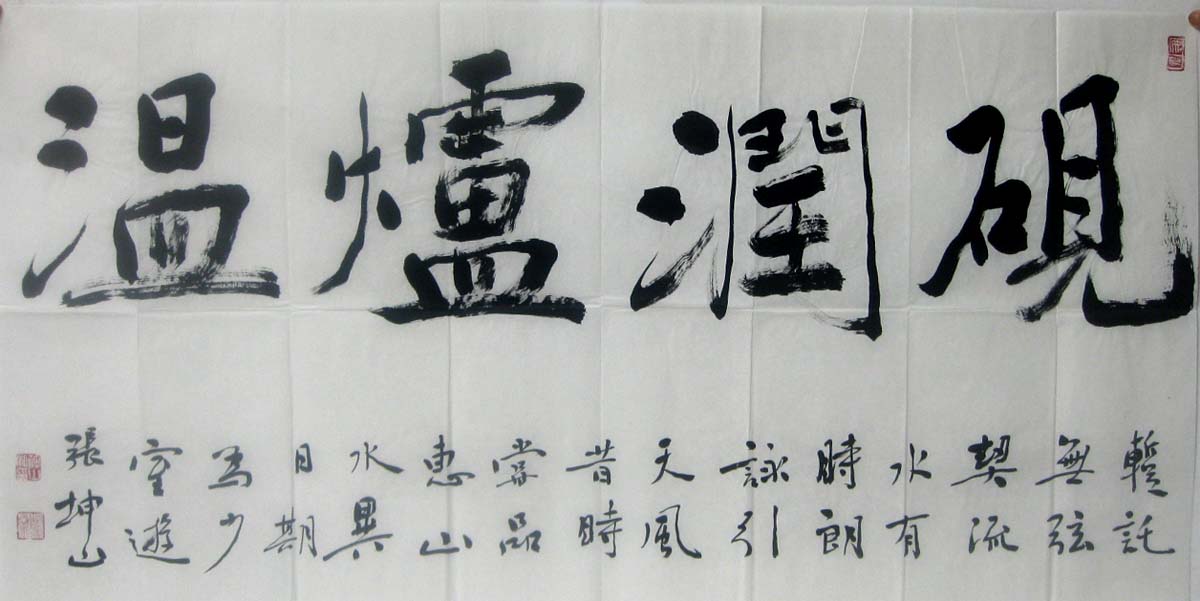 硯潤爐温
暫託
無弦
契流
水有
時朗
詠引
天風
昔時
嘗品
惠山
水異
日期
為少
室遊
張坤山